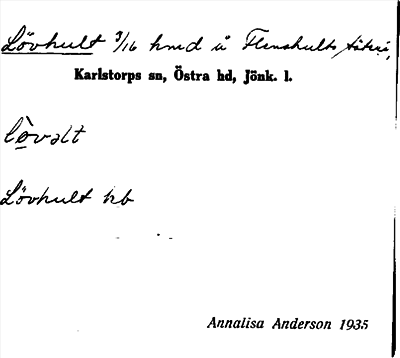 Lövhult 3/16 hmd å Flenshults säteri,
Karlstorps sn, Östra hd, Jönk. l.
lòvəlt
Lövhult kb
Annalisa Anderson 1935